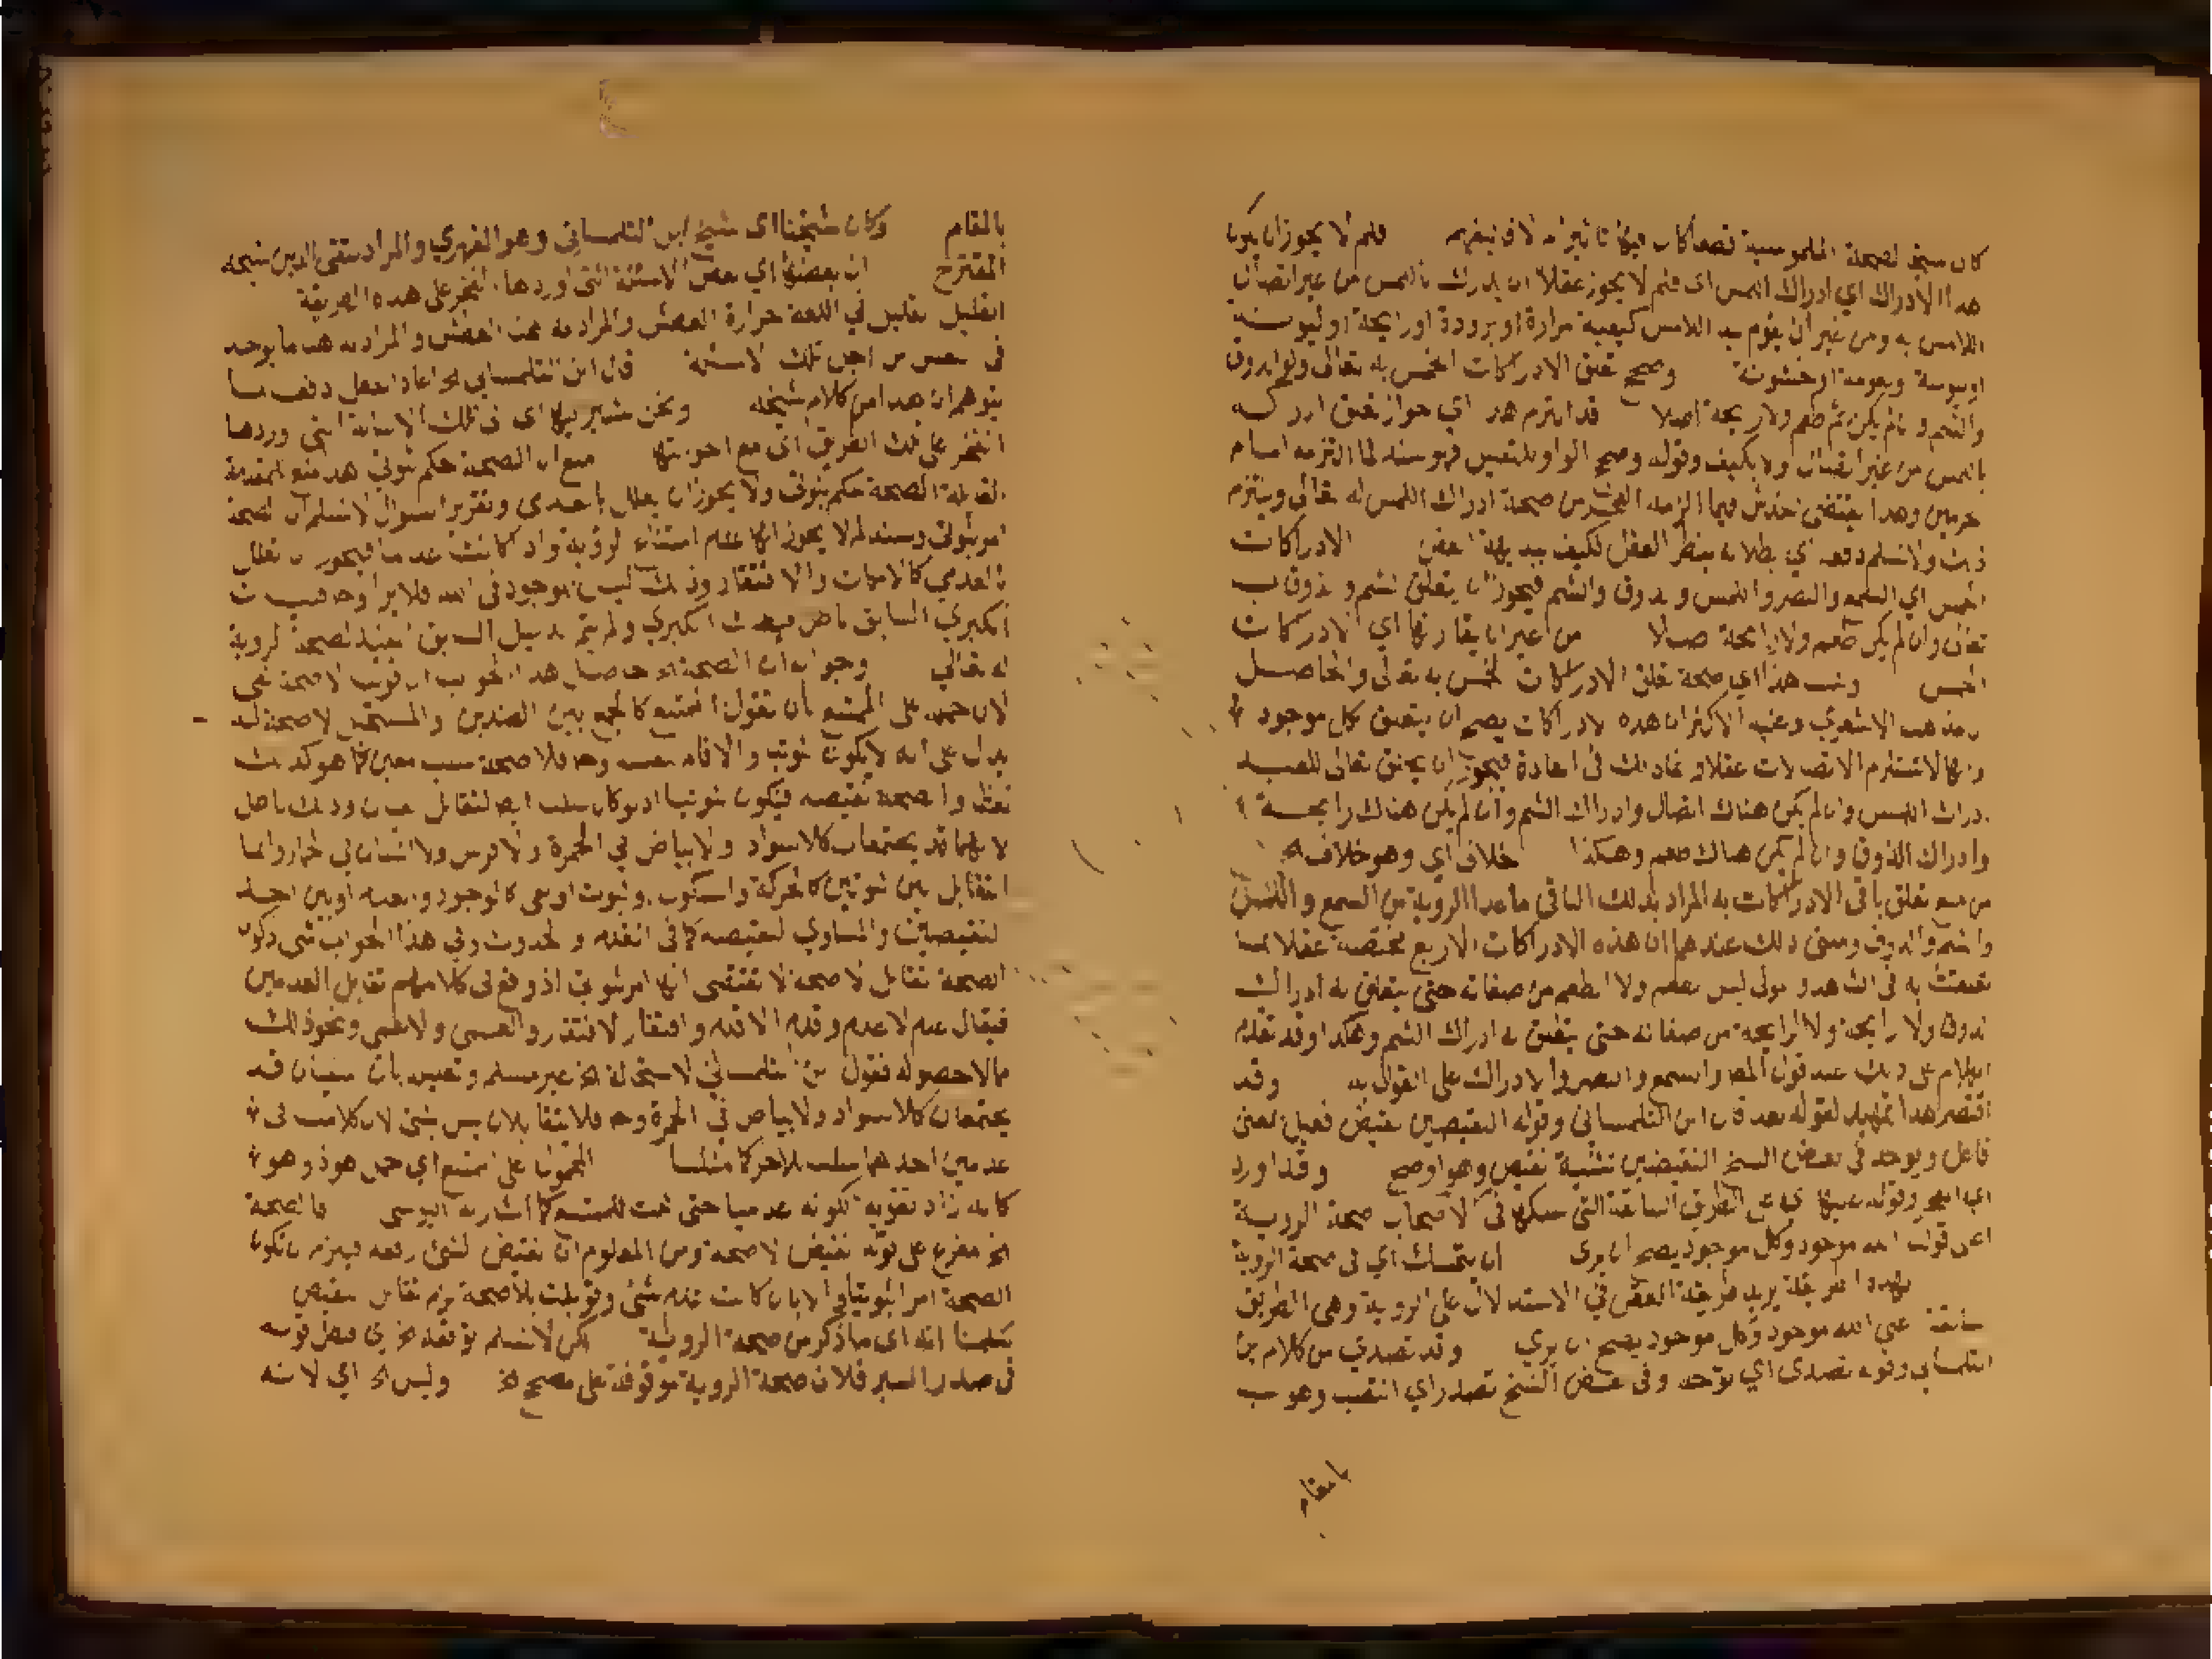 كان سبق لصحة الملموسية قصدا كان فيها تأثير أم لا فليفهم فلم لا يجوز ان يكون
هذا الادراك اي ادراك اللمس اي فلم لا يجوز عقلا ان يدرك باللمس من غير اتصال
اللامس به ومن غير ان يقوم بيد اللامس كيفية حرارة او برودة او رايحة او ليونة
او يبوسة ونعومة او خشونة وصح تعلق الادراكات الخمس به تعالى ولو الذوق
والشم وان لم يكن ثم طعم ولا رايحة اصلا قد التزم هذا اي جواز تعلق ادراك
باللمس من غير اتصال ولا تكيف وقوله وصح الواو للتعليل فهو سند لما التزمه امام
الحرمين وهذا يقتضي فيما الزمه الفخر من صحة ادراك اللمس له تعالى ويلتزم
ذلك ولا نسلم دفعه اي بطلانه بنظر العقل فكيف ببديهة العقل الادراكات
الخمس اي السمع والبصر واللمس والذوق والشم فيجوز ان يتعلق الشم والذوق به
تعالى وان لم يكن طعم ولا رايحة اصلا من غير ان يقارنها اي الادراكات
الخمس ونسب هذا اي صحة تعلق الادراكات الخمس به تعالى والحاصل
ان مذهب الاشعري وعليه الاكثر ان هذه الادراكات يصح ان يتعلق بكل موجود
وانها لا تستلزم الاتصالات عقلا وانما ذلك في العادة فيجوز ان يخلق تعالى للعبد
ادراك اللمس وان لم يكن هناك اتصال وادراك الشم وان لم يكن هناك رايحة
وادراك الذوق وان لم يكن هناك طعم وهكذا خلاف اي وهو خلاف الخ
من منع تعلق باقي الادراكات به المراد بذلك الباقي ما عدا الروية من السمع واللمس
والشم والذوق ومبنى ذلك عندهما ان هذه الادراكات الاربع مختصة عقلا بما
تعلقت به في الشاهد والمولى ليس بطعم ولا الطعم من صفاته حتى يتعلق به ادراك
الذوق ولا رايحة ولا الرايحة من صفاته حتى يتعلق به ادراك الشم وهكذا وقد تقدم
الكلام على ذلك عند قول المص والسمع والبصر والادراك على القول به وقد
اقتصر هذا تمهيد لقوله بعد قال ابن التلمساني وقوله النقيضين نقيض فعيل بمعنى
فاعل ويوجد في بعض النسخ النقيضين تثنية نقيض وهو اوضح وقد اورد
اي الفخر وقوله عليها اي على الطريق السابقة التي سلكها في الاصحاب صحة الروية
اعني قولك الله موجود وكل موجود يصح ان يرى ان يتمسك اي في صحة الروية
بهذه الطريقة يريد طريقة العقل في الاستدلال على الروية وهي الطريق
السابقة اعني الله موجود وكل موجود يصح ان يرى وقد تصدى من كلام ابن
التلمساني وقوله تصدى اي توجه وفي بعض النسخ تصدر اي انتصب وهو انسب
بالمقام
بالمقام وكان شيخنا اي شيخ ابن التلمساني وهو الفهري والمراد بتقي الدين شيخه
المقترح ان بعضها اي بعض الاسئلة التي اوردها الفخر على هذه الطريقة
الغليل الغليل في اللغة حرارة العطش والمراد به محل العطش والمراد به هنا ما يوجد
في النفس من اجل تلك الاسئلة قال ابن التلمساني الخ اعاد الفعل دفعا لما
يتوهم ان هذا من كلام شيخه ونحن نشير اليها اي الى تلك الاسئلة التي اوردها
الفخر على تلك الطريق اي مع اجوبتها منع ان الصحة حكم ثبوتي هذا منع للمقدمة
القائلة الصحة حكم ثبوتي ولا يجوز ان يعلل بالعدمي وتقرير السوال لا نسلم ان الصحة
امر ثبوتي وسنده لم لا يجوز انها عدم امتناع الروية واذا كانت عدما فيجوز ان تعلل
بالعدمي كالامكان والافتقار وذلك ليس بموجود في الله فلا يرا وحاصل ان
الكبرى السابق ولم يتم الدليل السابق المفيد لصحة الروية
له تعالى وجوابه ان الصحة الخ حاصل هذا الجواب ان قولك لا صحة نفي
لان حمله على الممتنع بان تقول الممتنع كالجمع بين الضدين والمستحيل لا صحة له
يدل على انه لا يكون ثبوتيا فلا صحة سلب كما هو كذلك
لفظا والصحة نقيضه فيكون ثبوتيا اذ لو كان سلبا ايضا لتقابل سلبان وذلك باطل
لانهما قد يجتمعان كلا سواد ولا بياض في الحمرة ولا فرس ولا انسان في الحمار وانما
التقابل بين ثبوتين كالحركة والسكون وثبوت ونفي كالوجود ونفيه او بين احد
النقيضين والمساوي لنقيضه كما في القدم والحدوث وفي هذا الجواب شي وكون
الصحة تقابل لا صحة لا تقتضي انها امر ثبوتي اذ وقع في كلامهم تقابل العدمين
فيقال عدم لا عدم وقدم الا قدم وافتقار لا افتقار والعمى ولا عمى ونحو ذلك
مما لا حصر له فقول ابن التلمساني لاستحالة الخ غير مسلم وتعليله بان سلبان قد
يجتمعان كلا سواد ولا بياض في الحمرة وحد فلا يتقابلان ليس بشي لان كلامنا في
عدمين احدهما سلب للاخر كما مثلنا المحمول على الممتنع اي حمل هو ذو هو
كانه زاد تقوية لكونه عدميا حتى نعت للممتنع كما اشار به اليوسي فالصحة
الخ مفرع على قوله نقيض لا صحة ومن المعلوم ان نقيض الشي رفعه فيلزم ان تكون
الصحة امرا ثبوتيا لانها ان كانت عدم شي وقوبلت بلا صحة لزم تقابل نقيض
سلمنا انه اي ما ذكر من صحة الروية لكن لا نسلم توقفه الخ
في صدر السبر فلان صحة الروية موقوفة على مصحح الخ وليس الخ اي لانه